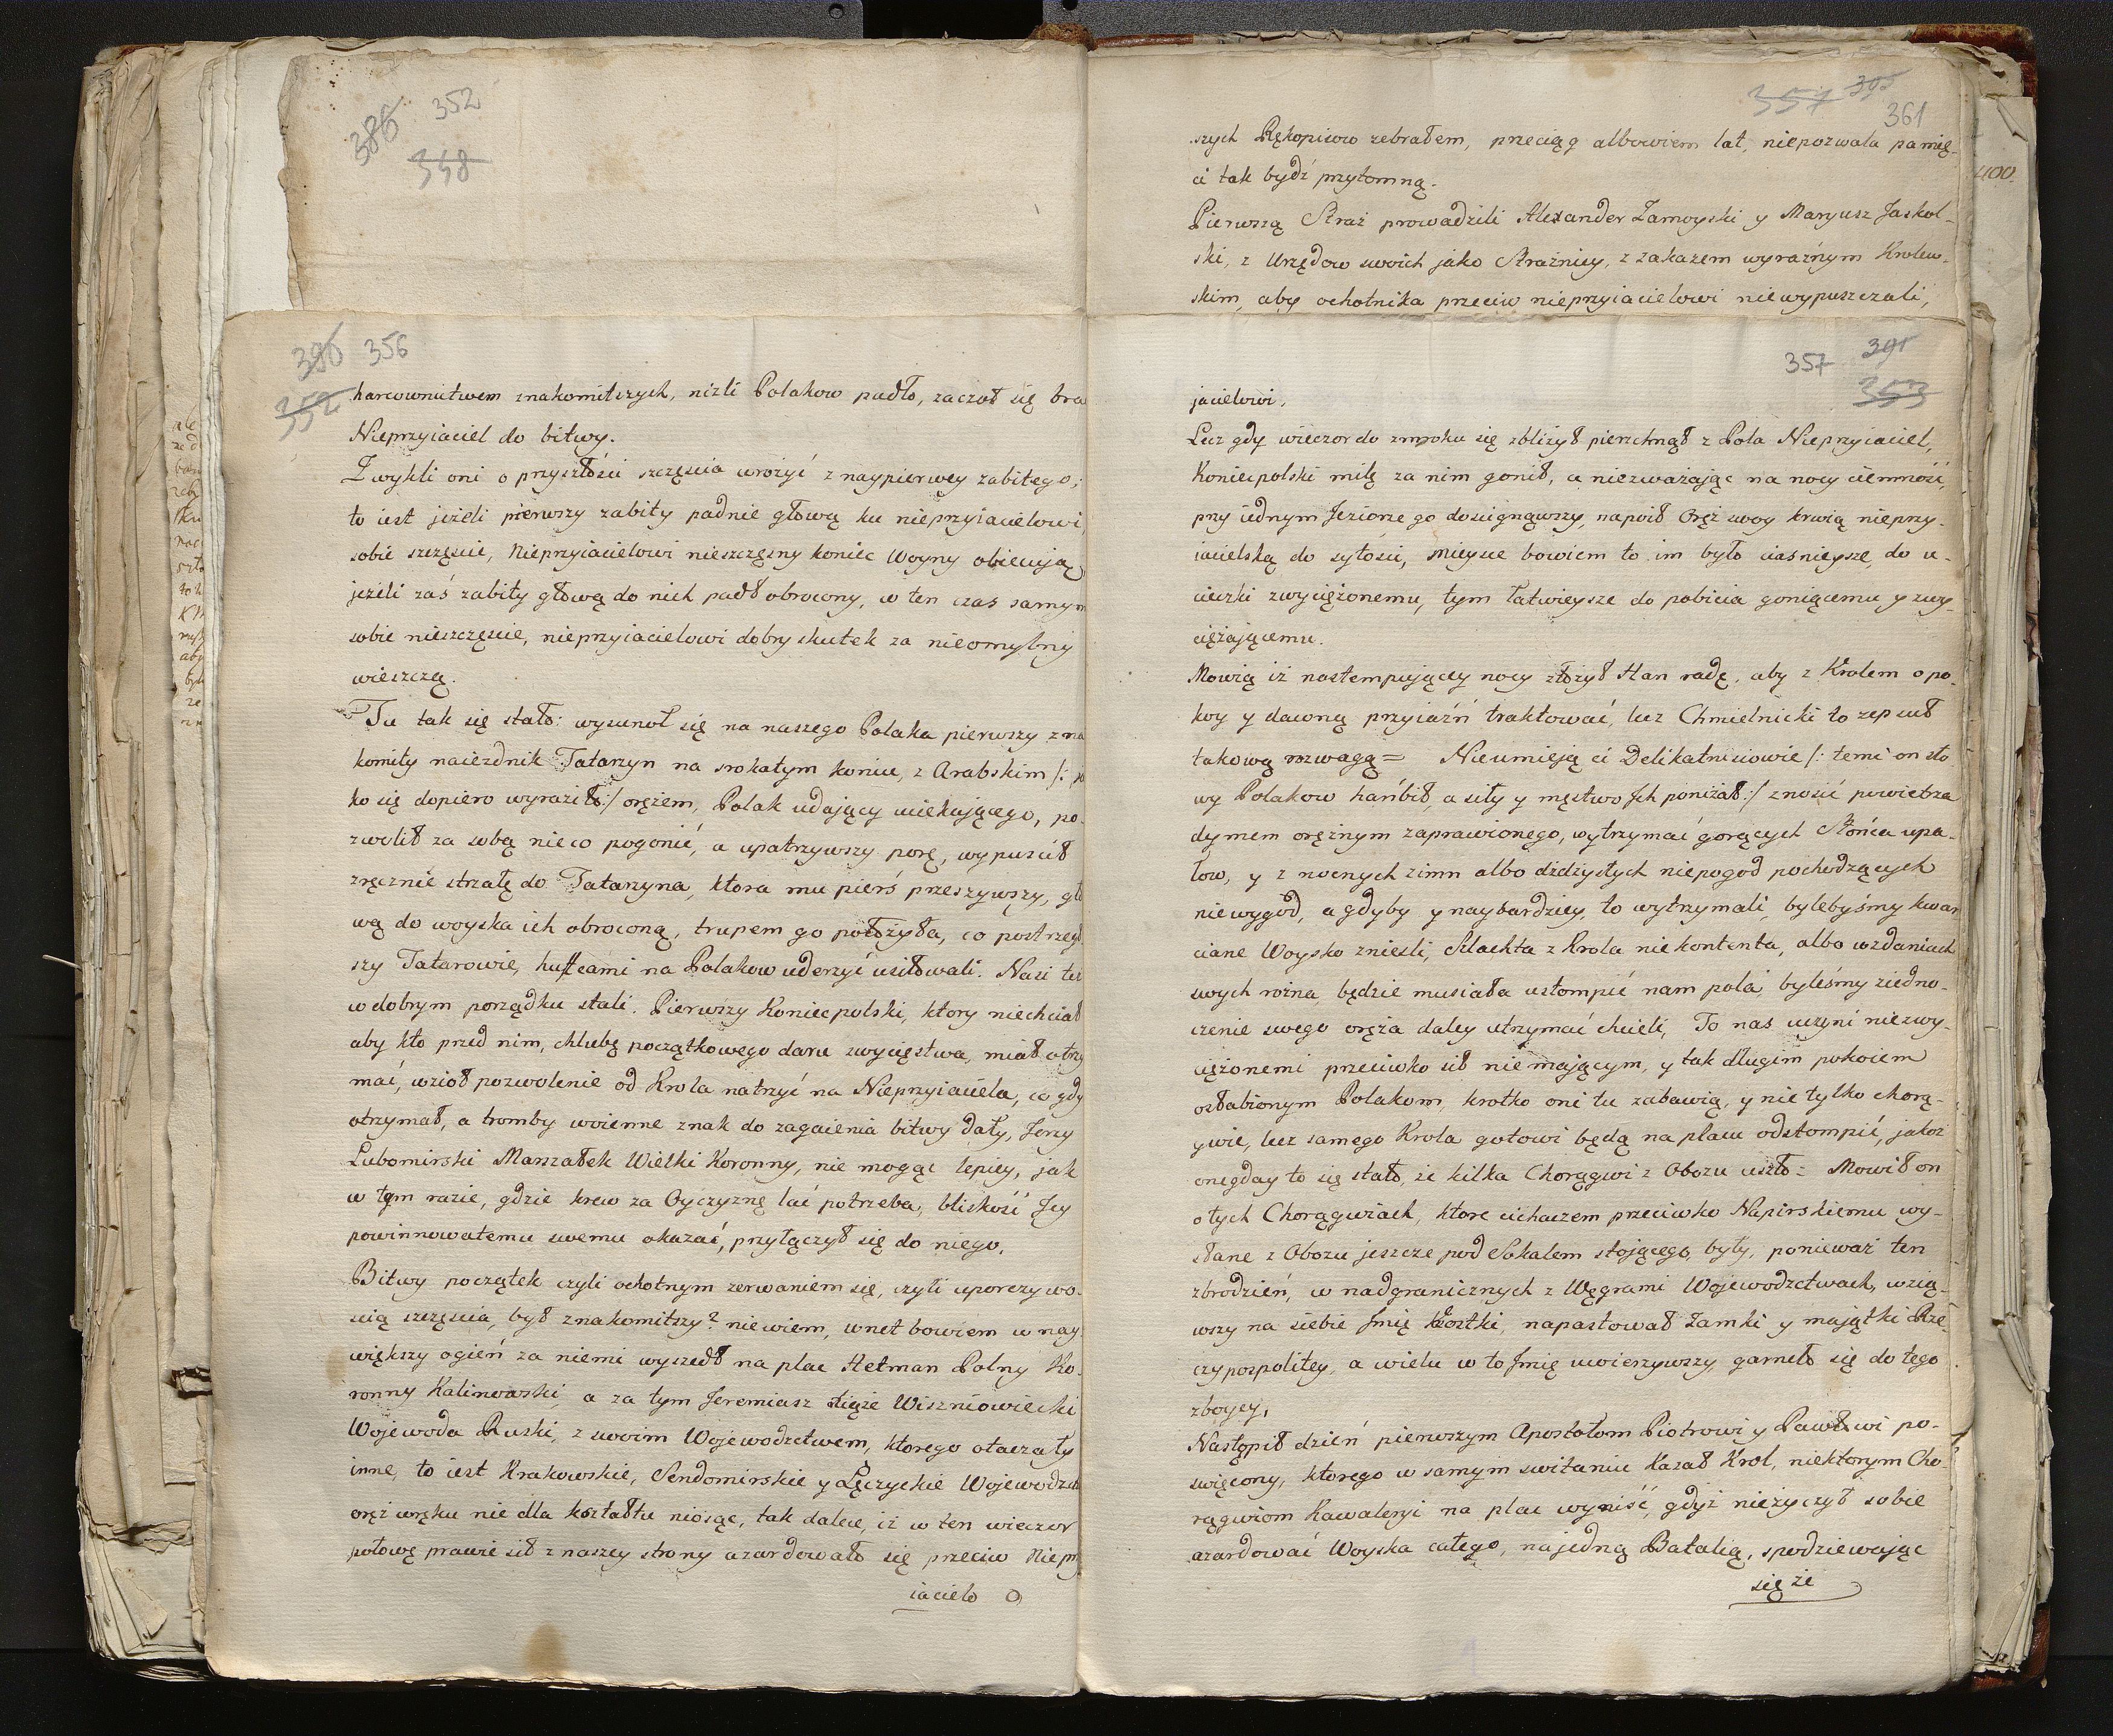 386 352
348
357 395
361
szych Rękopisow zebrałem, przeciąg albowiem lat, niepozwala pamię-
ci tak bydź przytomną.
Pierwszą Straż prowadzili Alexander Zamoyski y Maryusz Jaskol-
ski, z Urzędow swoich jako Strażnicy, z zakazem wyraźnym Krolew-
skim, aby ochotnika przeciw nieprzyiacielowi niewypuszczali,
400.
390 356
352
harcownictwem znakomitszych, niżli Polakow padło, zaczoł się bra
Nieprzyiaciel do bitwy.
Zwykli oni o przyszłości szczęscia wrożyć z naypierwey zabitego;
to iest jeżeli pierwszy zabity padnie głową ku nieprzyiacielowi,
sobie szczęscie, Nieprzyiacielowi nieszczęsny koniec Woyny obiecują
jeżeli zaś zabity głową do nich padł obrocony, w ten czas samym
sobie nieszczęscie, nieprzyiacielowi dobry skutek za nieomylny
wieszczą.
Tu tak się stało: wysunoł się na naszego Polaka pierwszy zna
komity naiezdnik Tatarzyn na srokatym koniu, z Arabskim /: ja
ko się dopiero wyraziło :/ orężem, Polak udający uciekającego, po-
zwolił za sobą nieco pogonić, a upatrzywszy porę, wypuscił
zręcznie strzałę do Tatarzyna, ktora mu pierś przeszywszy, gło
wą do woyska ich obroconą, trupem go położyła, co postrzegł
szy Tatarowie, hufcami na Polakow uderzyć usiłowali. Nasi też
w dobrym porządku stali. Pierwszy Koniecpolski, ktory niechciał
aby kto przed nim, chlubę początkowego daru zwycięstwa, miał otrzy
mać, wzioł pozwolenie od Krola natrzyć na Nieprzyiaciela, co gdy
otrzymał, a tromby woienne znak do zagaienia bitwy dały, Jerzy
Lubomirski Marszałek Wielki Koronny, nie mogąc lepiey, jak
w tym razie, gdzie krew za Oyczyznę lać potrzeba, bliskość Jey
powinnowatemu swemu okazać, przyłączył się do niego.
Bitwy początek czyli ochotnym zerwaniem się, czyli uporczywo-
scią szczęscia, był znakomitszy? niewiem, wnet bowiem w nay
większy ogień za niemi wyszedł na plac Hetman Polny Ko-
ronny Kalinowski, a za tym Jeremiasz Xiąże Wiszniowiecki
Wojewoda Ruski, z swoim Wojewodztwem, ktorego otaczały
inne, to iest Krakowskie, Sendomirskie y Łęczyckie Wojewodztw
oręż w ręku nie dla kształtu niosąc, tak dalece, iż w ten wieczor
połowę prawie sił z naszey strony azardowało się przeciw Niepr
iacielo
357 391
353
jacielowi,
Lecz gdy wieczor do zmroku się zbliżył pierzchnął z Pola Nieprzyiaciel,
Koniecpolski milę za nim gonił, a niezważając na nocy ciemność,
przy iednym Jeziorze go doscignąwszy, napoił Oręż swoy krwią nieprzy-
iacielską do sytości, mieysce bowiem to im było ciasnieysze do u-
cieczki zwyciężonemu, tym łatwieysze do pobicia goniącemu y zwy-
ciężającemu.
Mowią iż nastempujący nocy złożył Han radę, aby z Krolem o po-
koy y dawną przyiaźń traktować, lecz Chmielnicki to zepsuł
takową rozwagą = Nieumieją ci Delikatnisiowie /: temi on sło
wy Polakow hańbił, a siły y męstwo Jch poniżał :/ znosić powietrza
dymem orężnym zaprawionego, wytrzymać gorących Słońca upa-
łow, y z nocnych zimn albo dżdżystych niepogod pochodzących
niewygod, a gdyby y naybardziey, to wytrzymali, bylebyśmy kwar
ciane Woysko znieśli, Szlachta z Krola niekontenta, albo w zdaniach
swych rożna, będzie musiała ustompić nam pola, byleśmy ziedno-
czenie swego oręża daley utrzymać chcieli, To nas uczyni niezwy-
ciężonemi przeciwko sił niemającym, y tak długim pokoiem
osłabionym Polakom, krotko oni tu zabawią, y nie tylko chorą-
gwie, lecz samego Krola gotowi będą na placu odstompić, jakoż
onegday to się stało, że kilka Chorągwi z Obozu uszło = Mowił on
o tych Chorągwiach, ktore cichaczem przeciwko Napirskiemu wy-
słane z Obozu jeszcze pod Sokalem stojącego, były, ponieważ ten
zbrodzień, w nadgranicznych z Węgrami Wojewodztwach, wzią-
wszy na siebie Jmię Kostki, napastował Zamki y majątki Rze-
czypospolitey, a wielu w to Jmię uwierzywszy, garneło się do tego
zboycy,
Nastąpił dzień pierwszym Apostołom Piotrowi y Pawłowi po-
święcony, ktorego w samym switaniu Kazał Krol, niektorym Cho
rągwiom Kawaleryi na plac wyniść, gdyż nieżyczył sobie
azardować Woyska całego, na jedną Batalią, spodziewając
się że